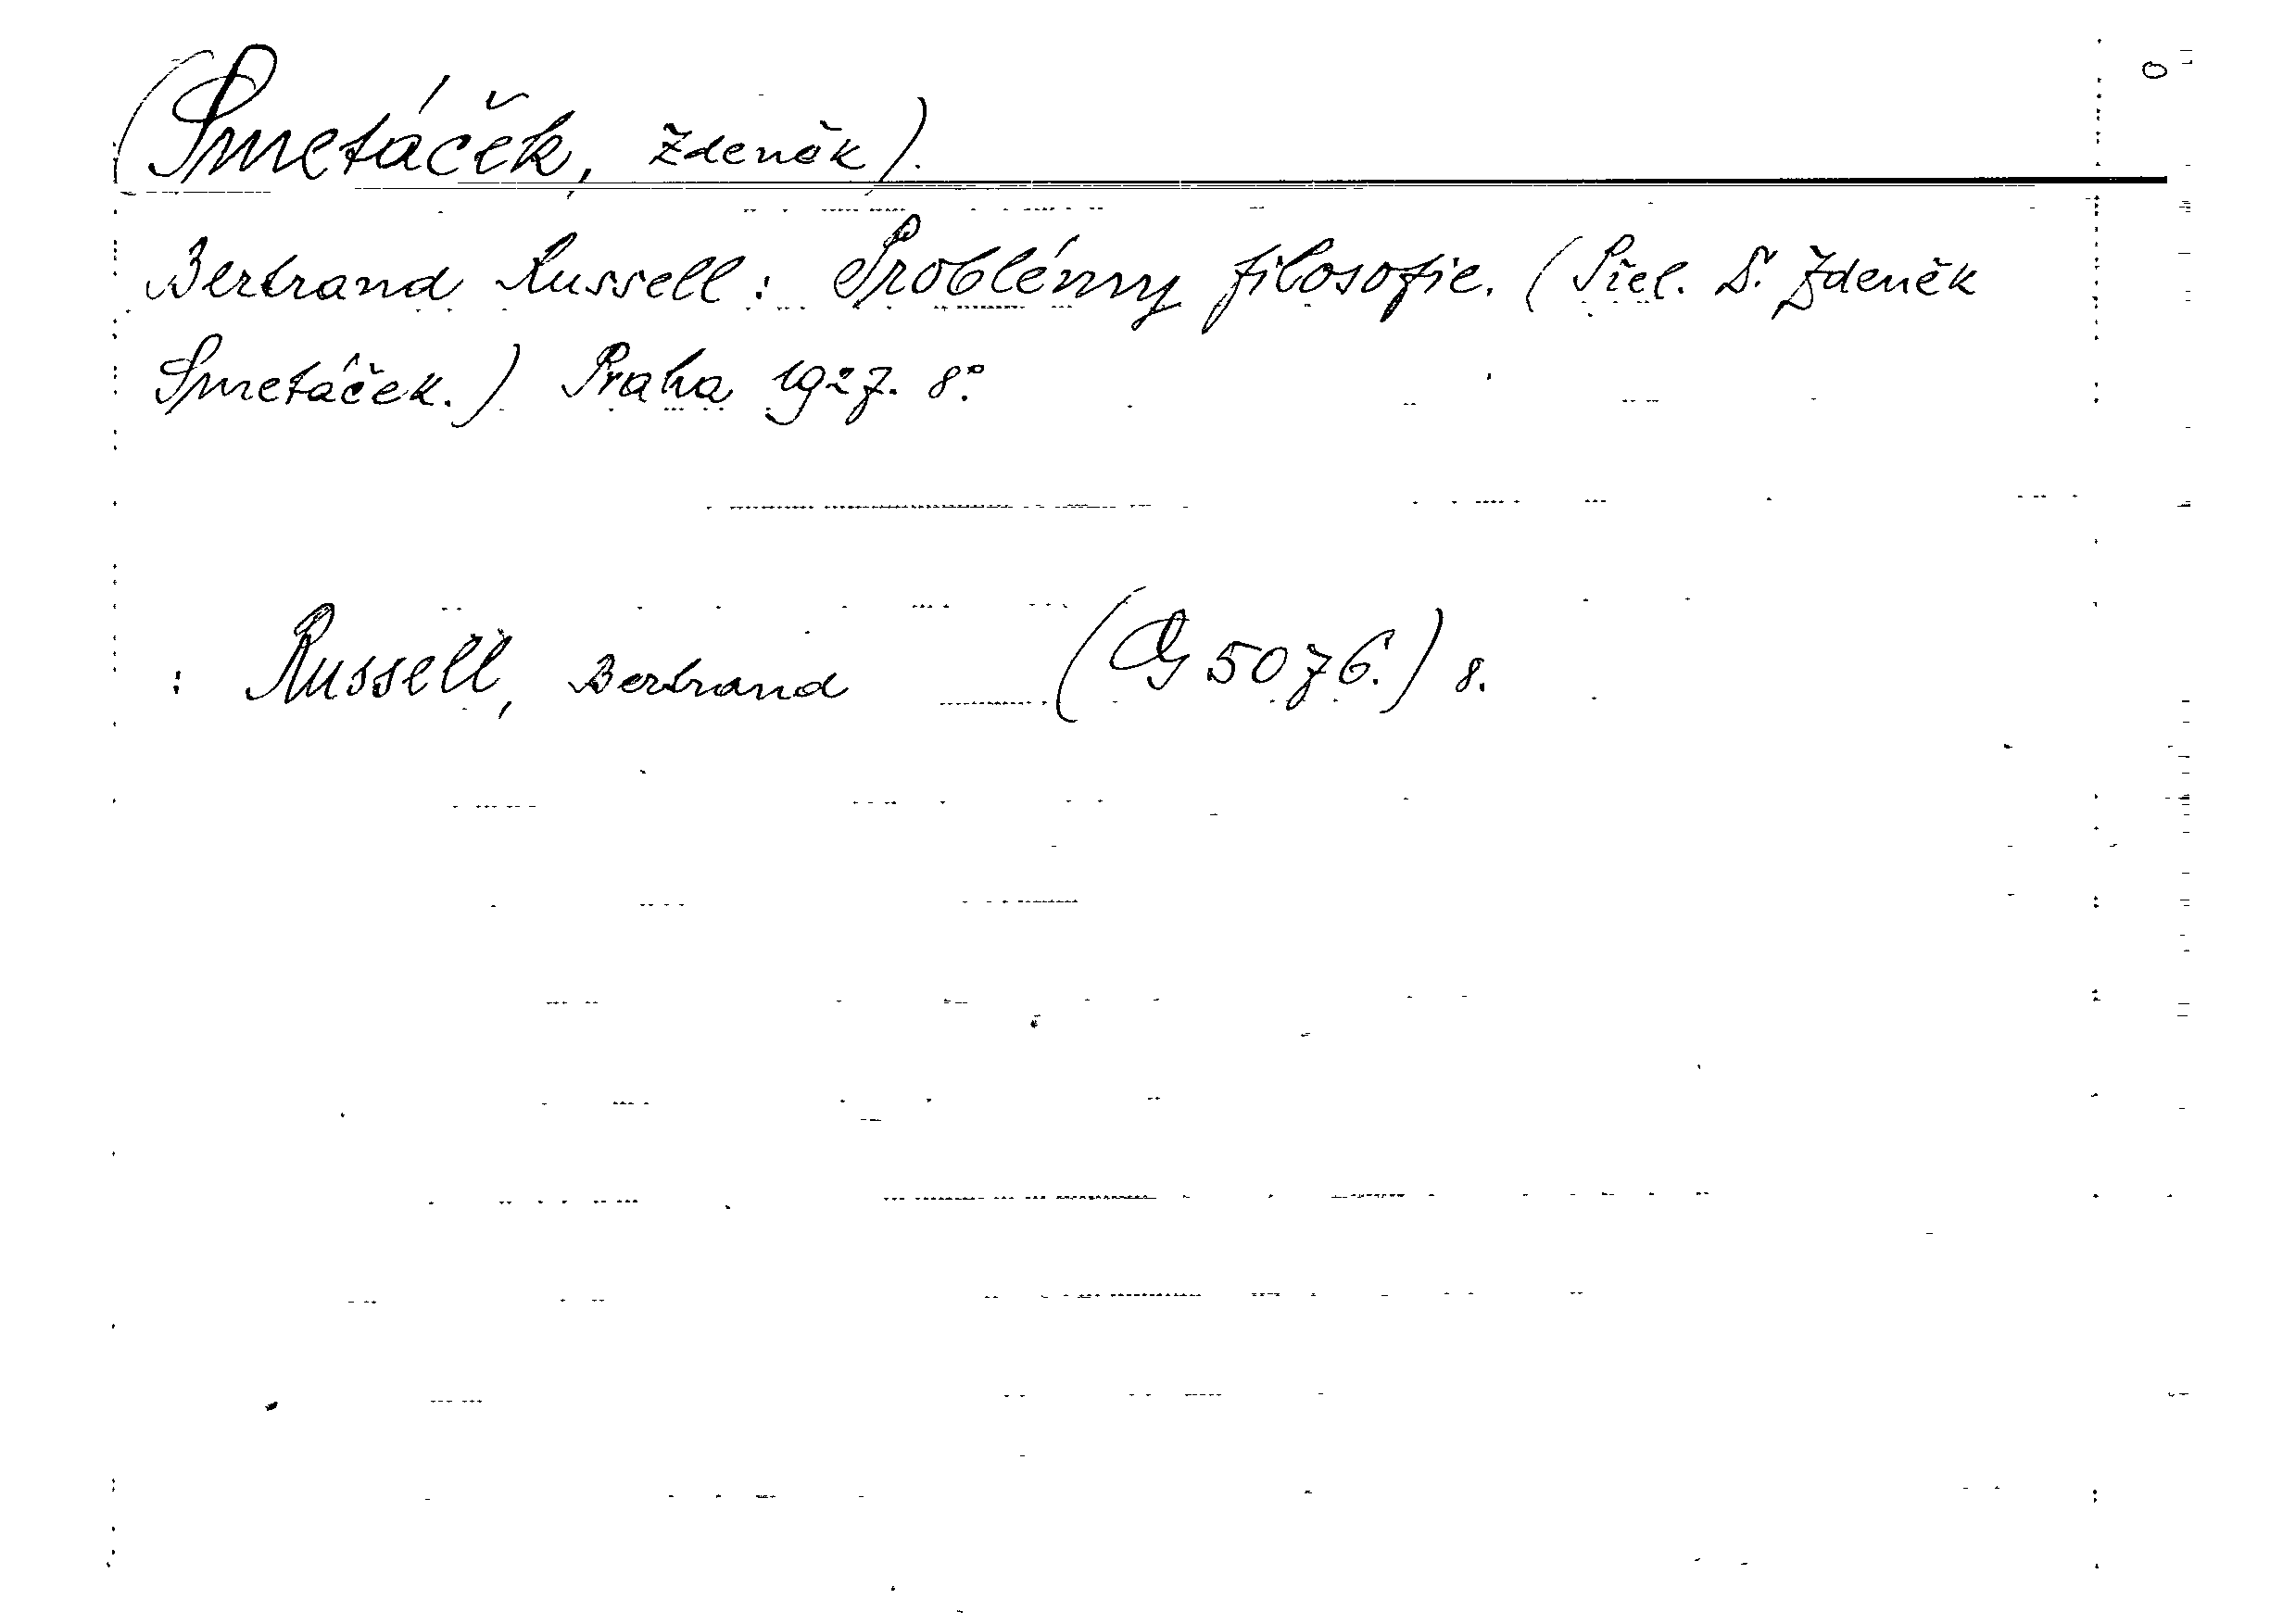 (Smetáček, Zdeněk).
Bertrand Russell: Problémy filosofie. (Přel. Dr. Zdeněk
Smetáček.) Praha 1927. 8°
: Russell, Bertrand (G 5076.) 8.